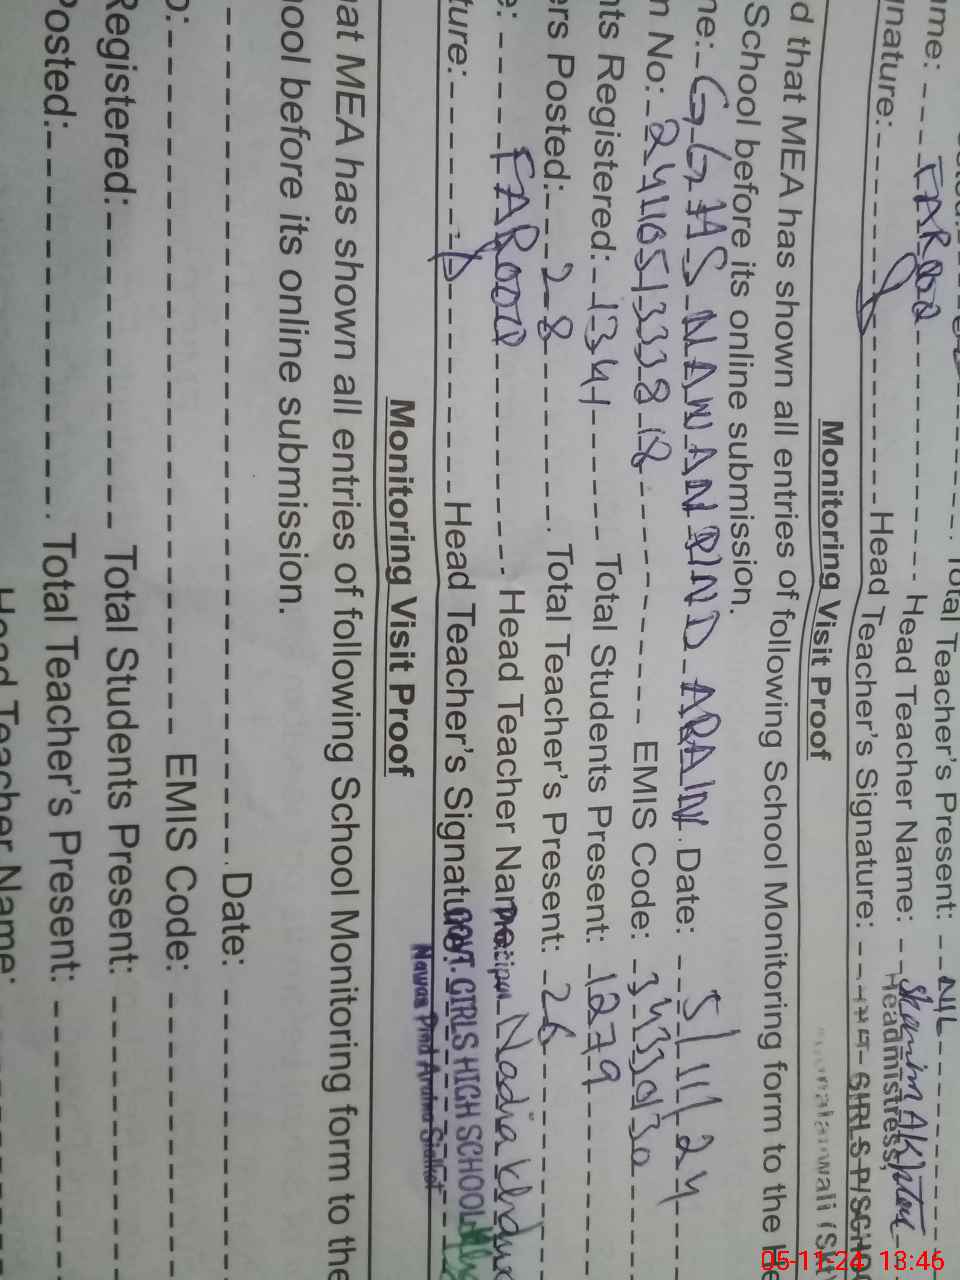 Total Teacher's Present: NIL
ame: FAROOQ Head Teacher Name: Shamim Akhter
Headmistress,
gnature: Head Teacher's Signature: GIRLS
Monitoring Visit Proof
d that MEA has shown all entries of following School Monitoring form to the He
School before its online submission.
me: G.G.H.S NAWAN PIND ARAIN Date: 5/11/24
n No: EMIS Code:
nts Registered: 1341 Total Students Present: 1279
ers Posted: 28 Total Teacher's Present: 26
e: FAROOQ Head Teacher Name: Nadia
ture: Head Teacher's Signature:
GOVT. GIRLS HIGH SCHOOL
Monitoring Visit Proof
hat MEA has shown all entries of following School Monitoring form to the
hool before its online submission.
Date:
o: EMIS Code:
Registered: Total Students Present:
Posted: Total Teacher's Present:
Head Teacher Name:
05-11-24 13:46